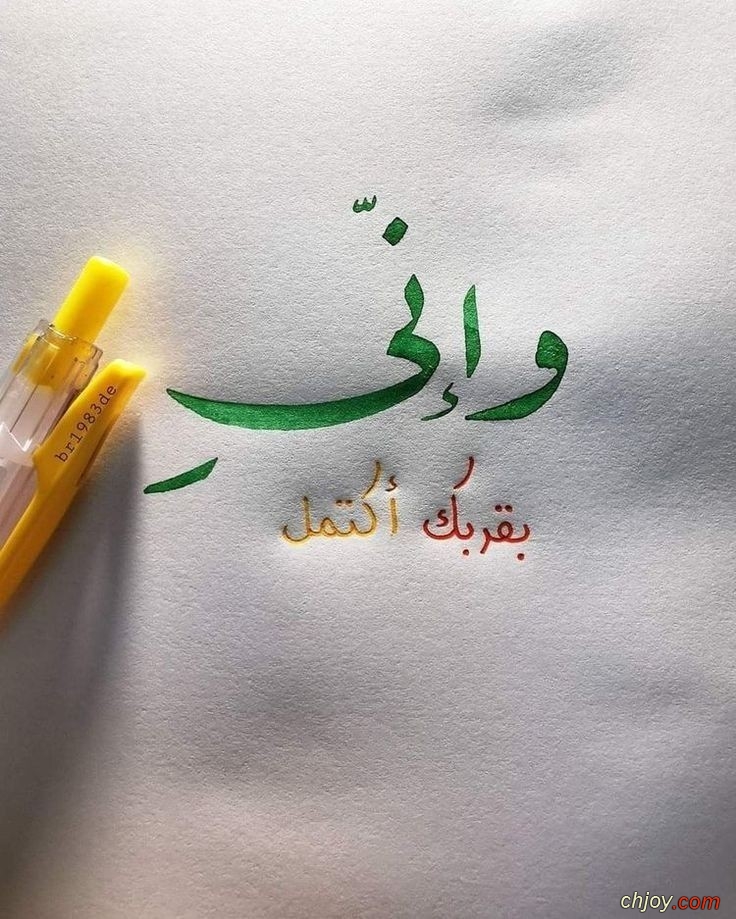 وإنّي
بقربك أكتمل
br1983de
chjoy.com